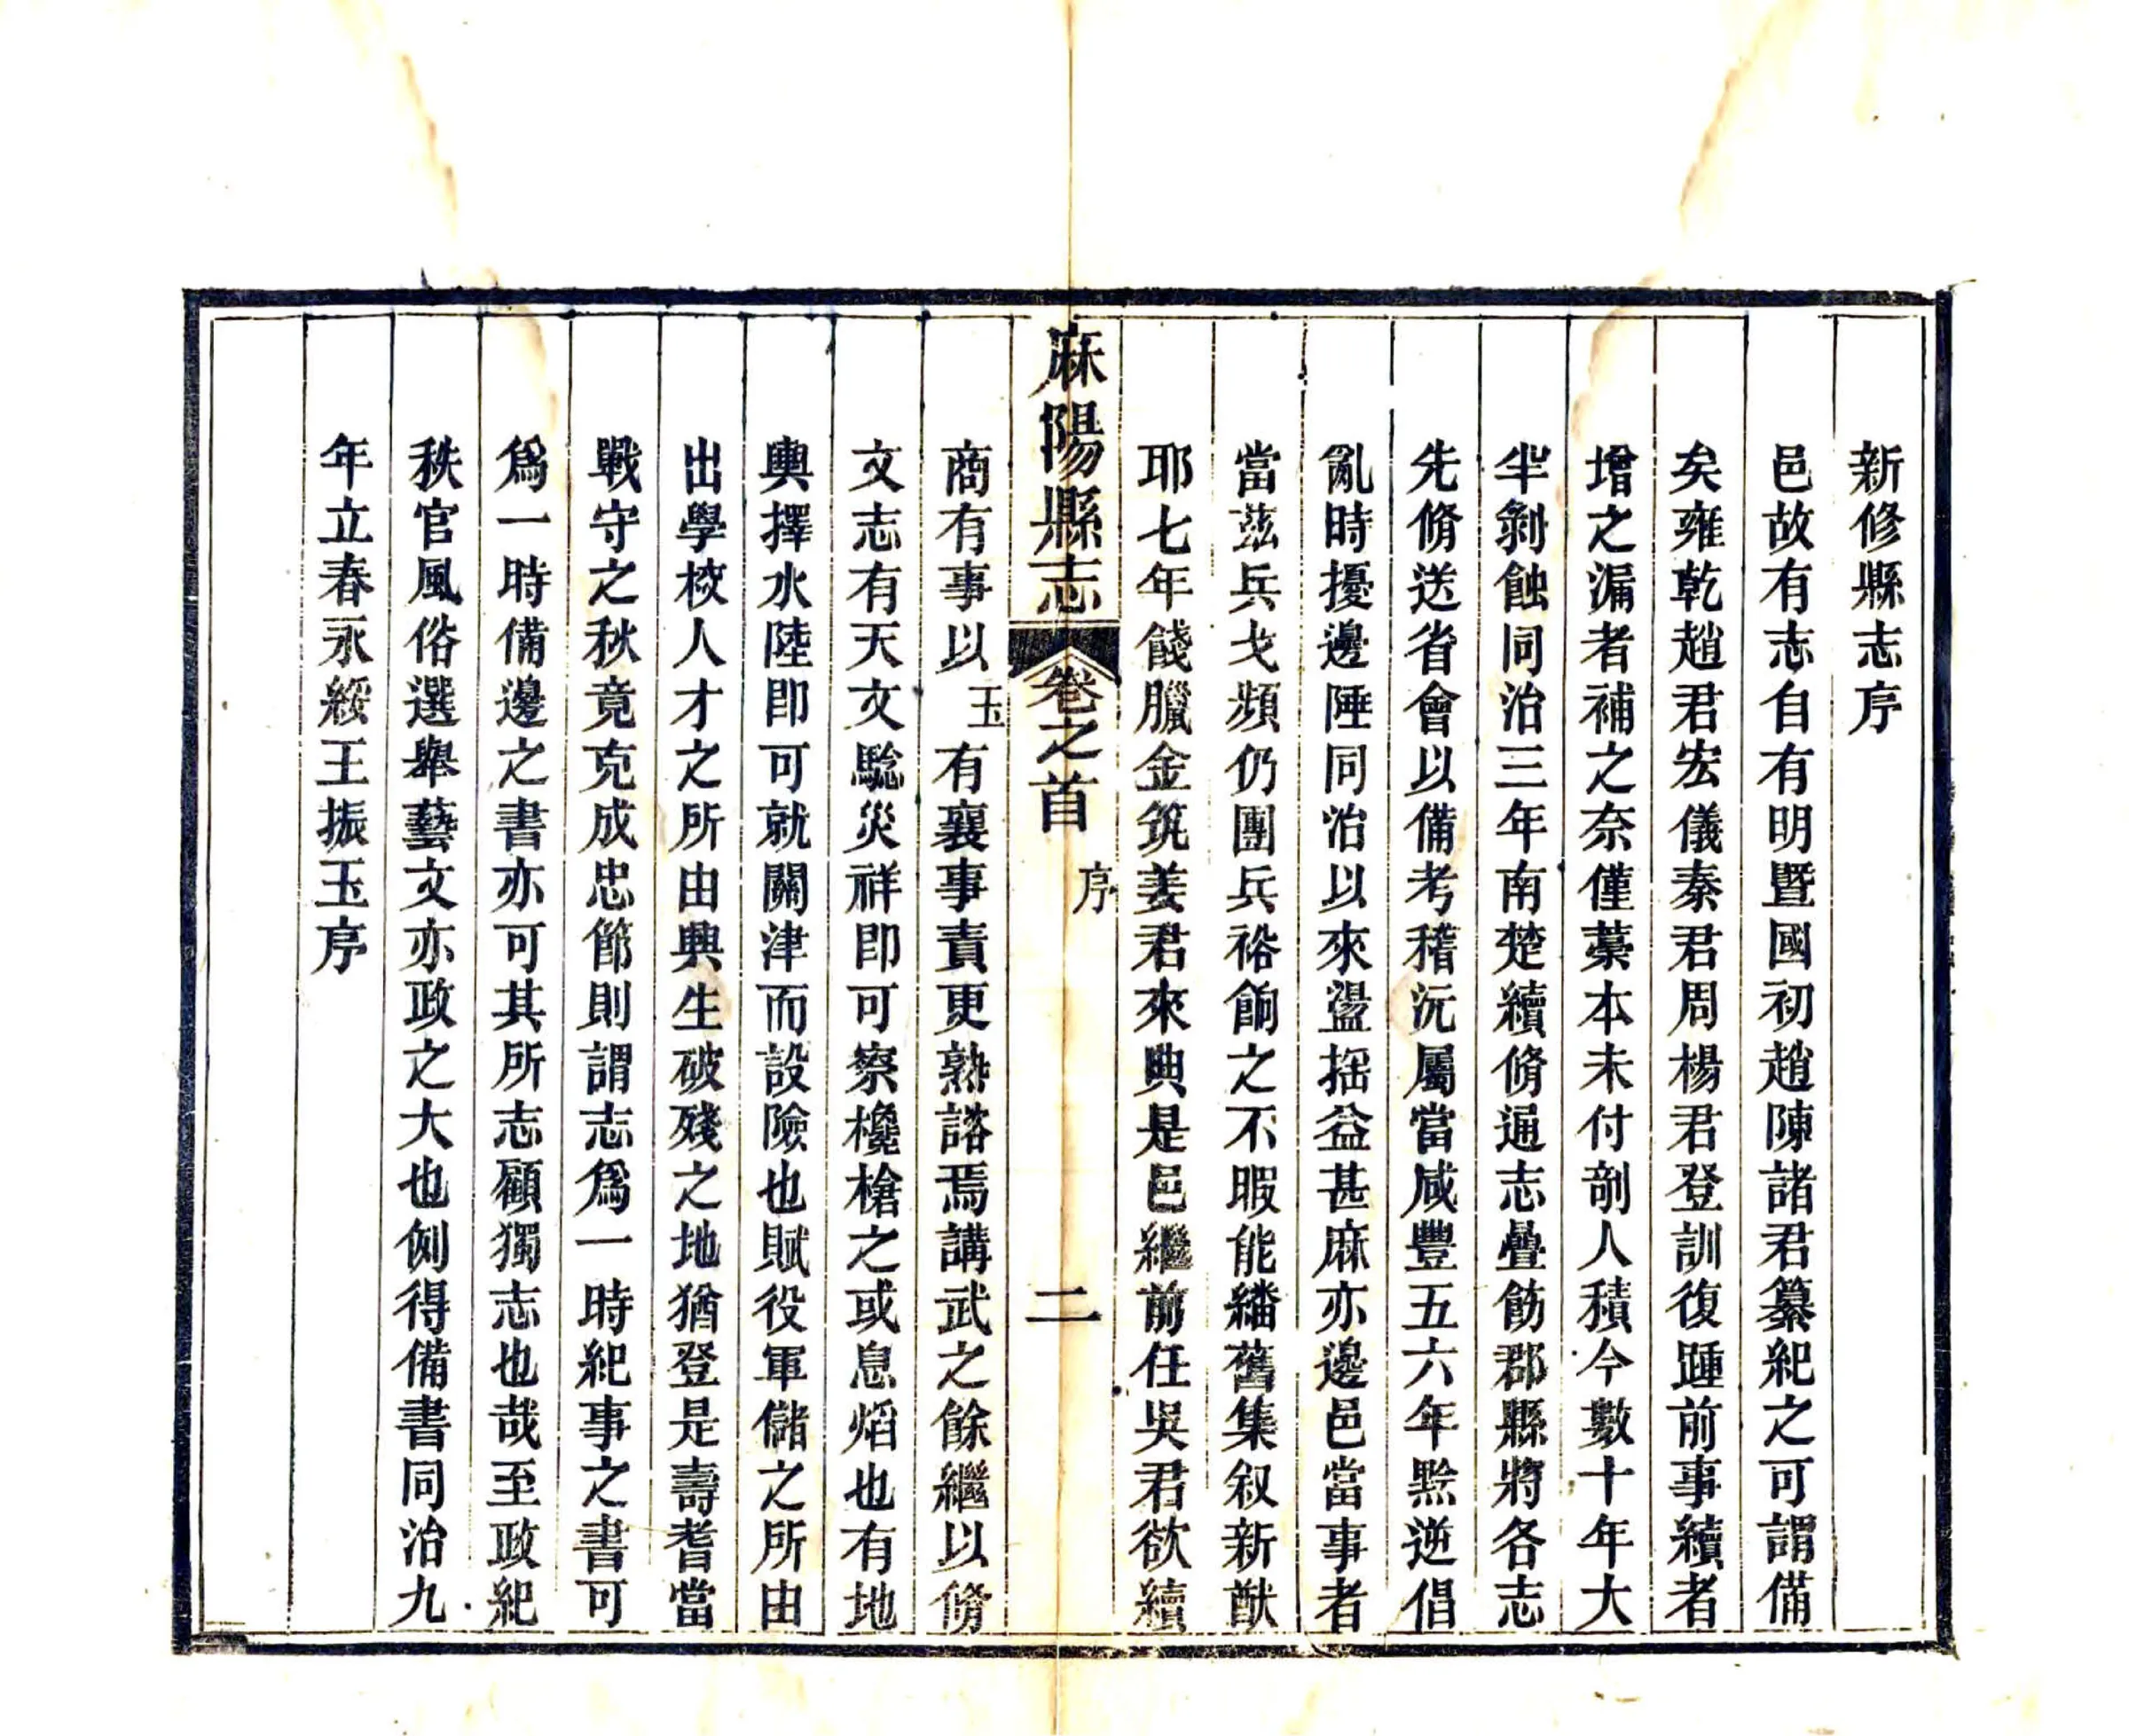 新修縣志序
邑故有志自有明暨國初趙陳諸君纂紀之可謂備
矣雍乾趙君宏儀秦君周楊君登訓復踵前事續者
增之漏者補之奈僅藁本未付剞人積今數十年大
半剝蝕同治三年南楚續脩通志疊飭郡縣將各志
先脩送省會以備考稽沅屬當咸豐五六年黔逆倡
亂時擾邊陲同治以來盪搖益甚麻亦邊邑當事者
當茲兵戈頻仍團兵裕餉之不暇能繙舊集叙新猷
耶七年餞臘金筑姜君來典是邑繼前任吳君欲續
麻陽縣志 卷之首 序 二
商有事以玉有襄事責更熟諮焉講武之餘繼以脩
文志有天文騐災祥即可察欃槍之或息熖也有地
輿擇水陸即可就關津而設險也賦役軍儲之所由
出學校人才之所由興生破殘之地猶登是壽耆當
戰守之秋竟克成忠節則謂志爲一時紀事之書可
爲一時備邊之書亦可其所志顧獨志也哉至政紀
秩官風俗選舉藝文亦政之大也例得備書同治九
年立春永綏王振玉序